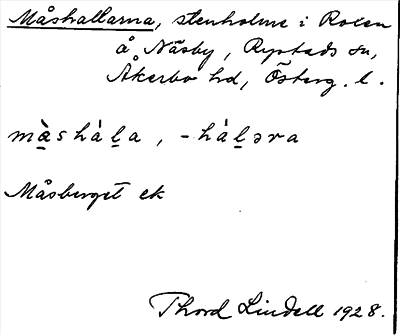 Måshallarna, stenholme i Roxen
å Näsby, Rystads sn,
Åkerbo hd, Österg. l.
mà̱shàḻa, -hàḻəra
Måsberget ek
Thord Lindell 1928.